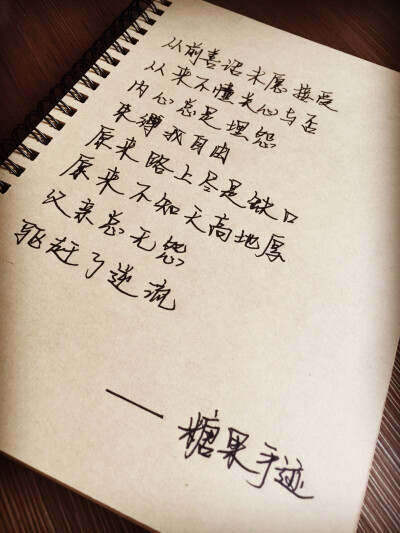 从前喜诏未愿接受
从来不懂关心与否
内心总是埋怨
束缚我自由
原来路上尽是缺口
原来不知天高地厚
父亲总无怨
驱赶了逆流
——糖果手迹